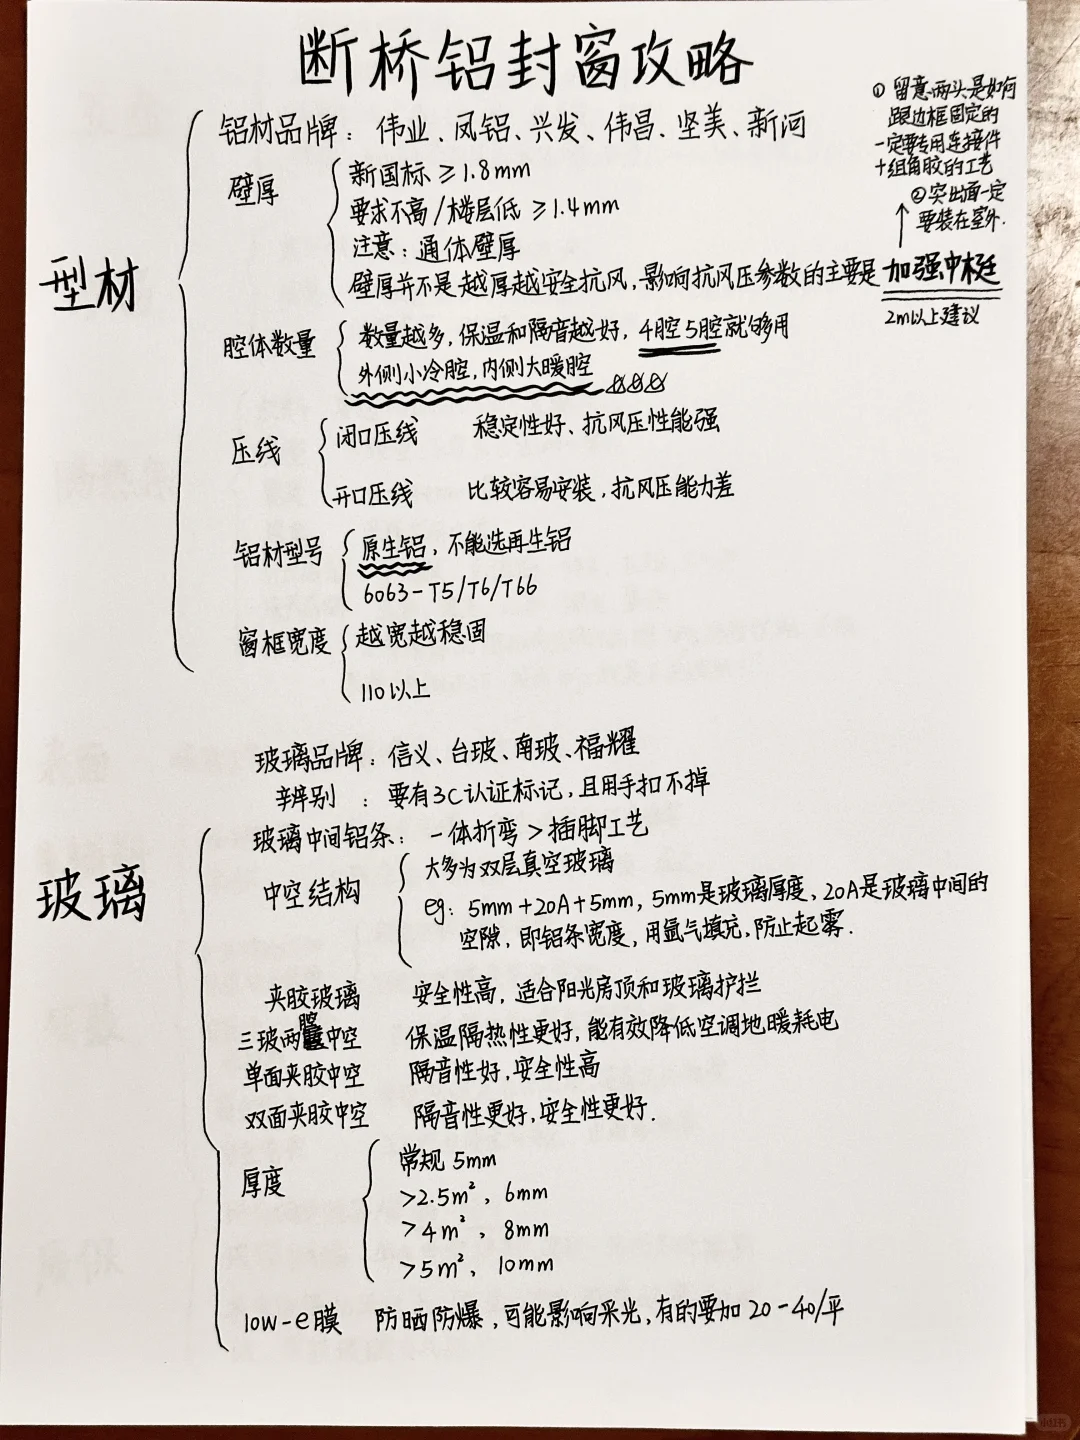 断桥铝封窗攻略
① 留意两头是如何
跟边框固定的
一定要专用连接件
+组角胶的工艺
② 突出面一定
要装在室外.
型材
铝材品牌：伟业、凤铝、兴发、伟昌、坚美、新河
壁厚
新国标 ≥1.8mm
要求不高/楼层低 ≥1.4mm
注意：通体壁厚
壁厚并不是越厚越安全抗风，影响抗风压参数的主要是 加强中梃
2m以上建议
腔体数量
数量越多，保温和隔音越好，4腔5腔就够用
外侧小冷腔，内侧大暖腔
压线
闭口压线 稳定性好、抗风压性能强
开口压线 比较容易安装，抗风压能力差
铝材型号
原生铝，不能选再生铝
6063-T5/T6/T66
窗框宽度
越宽越稳固
110以上
玻璃
玻璃品牌：信义、台玻、南玻、福耀
辨别：要有3C认证标记，且用手扣不掉
玻璃中间铝条：一体折弯 > 插脚工艺
中空结构
大多为双层真空玻璃
eg：5mm+20A+5mm，5mm是玻璃厚度，20A是玻璃中间的
空隙，即铝条宽度，用氩气填充，防止起雾.
夹胶玻璃 安全性高，适合阳光房顶和玻璃护拦
三玻两腔中空 保温隔热性更好，能有效降低空调地暖耗电
单面夹胶中空 隔音性好，安全性高
双面夹胶中空 隔音性更好，安全性更好.
厚度
常规 5mm
>2.5m²，6mm
>4m²，8mm
>5m²，10mm
low-e膜 防晒防爆，可能影响采光，有的要加 20-40/平
小红书